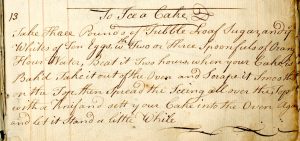 13 To Ice a Cake
Take Three Pounds of Dubble Loaf Sugar, and ye
Whites of Ten Eggs, w Two or Three Spoonfuls of Oran
Flour Water, Beat it Two hours when your Cake
Bak'd Take it out of the Oven and Scrape it Smooth
on the Top then spread the Iceing all over the Top
with a Knife and sett your Cake into the Oven Again
and let it Stand a little While